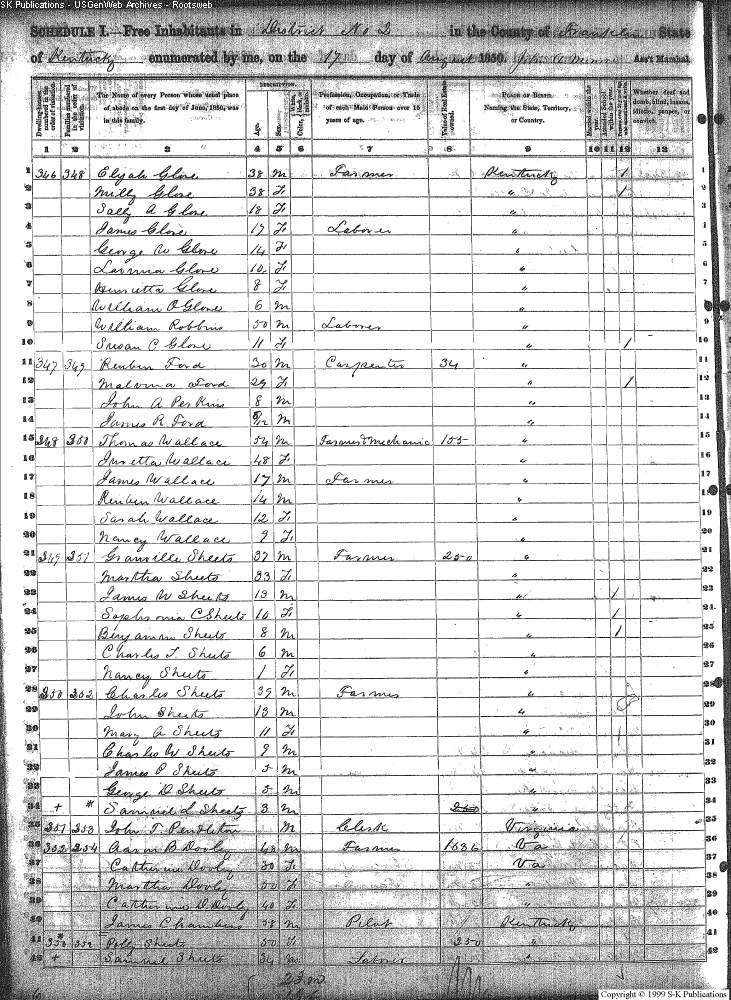 SK Publications - USGenWeb Archives - Rootsweb
SCHEDULE I.—Free Inhabitants in District No 2 in the County of Franklin State
of Kentucky enumerated by me, on the 17 day of August 1850. Ass't Marshal.
Dwelling-houses numbered in the order of visitation. Families numbered in the order of visitation. The Name of every Person whose usual place of abode on the first day of June, 1850, was in this family. DESCRIPTION. Age. Sex. Color, White, black, or mulatto. Profession, Occupation, or Trade of each Male Person over 15 years of age. Value of Real Estate owned. PLACE OF BIRTH. Naming the State, Territory, or Country. Married within the year. Whether deaf and dumb, blind, insane, idiotic, pauper, or convict.
1 2 3 4 5 6 7 8 9 10 11 12 13
1 346 348 Elijah Glove 38 M Farmer Kentucky / 1
2 Milly Glove 38 F " / 2
3 Sally A Glove 18 F " 3
4 James Glove 17 F Laborer " 4
5 George W Glove 14 F " 5
6 Lavinia Glove 10 F " 6
7 Henrietta Glove 8 F " 7
8 William O Glove 6 M " 8
9 William Robbins 50 M Laborer " 9
10 Susan C Glove 11 F " / 10
11 347 349 Reuben Ford 30 M Carpenter 34 " 11
12 Malvina Ford 29 F " / 12
13 John A Perkins 8 M " 13
14 James R Ford M " 14
15 348 350 Thomas Wallace 54 M Farmer & Mechanic 155 " 15
16 Wallace 48 F " 16
17 James Wallace 17 M Farmer " 17
18 Reuben Wallace 14 M " 18
19 Sarah Wallace 12 F " 19
20 Nancy Wallace 9 F " 20
21 349 351 Granville Sheets 37 M Farmer 250 " 21
22 Martha Sheets 33 F " 22
23 James W Sheets 13 M " / 23
24 Sophronia C Sheets 10 F " / 24
25 Benjamin Sheets 8 M " / 25
26 Charles T. Sheets 6 M " 26
27 Nancy Sheets 1 F " 27
28 350 352 Charles Sheets 39 M Farmer " 28
29 John Sheets 13 M " 29
30 Mary A Sheets 11 F " / 30
31 Charles W Sheets 9 M " 31
32 James P Sheets 5 M " 32
33 George D Sheets 5 M " 33
34 + * Samuel L Sheets 3 M 250 " 34
35 351 353 John T. Pendleton M Clerk Virginia 35
36 352 354 Aaron B Dooley 48 M Farmer 1636 Va 36
37 Catherine Dooley 30 F Va 37
38 Martha Dooley 50 F " 38
39 Catherine D Dooley 40 F " 39
40 James Chambers M Pilot Kentucky 40
41 Polly Sheets 50 F 250 " 41
42 + Samuel Sheets 34 M Laborer " 42
23 m
Copyright © 1999 S-K Publications